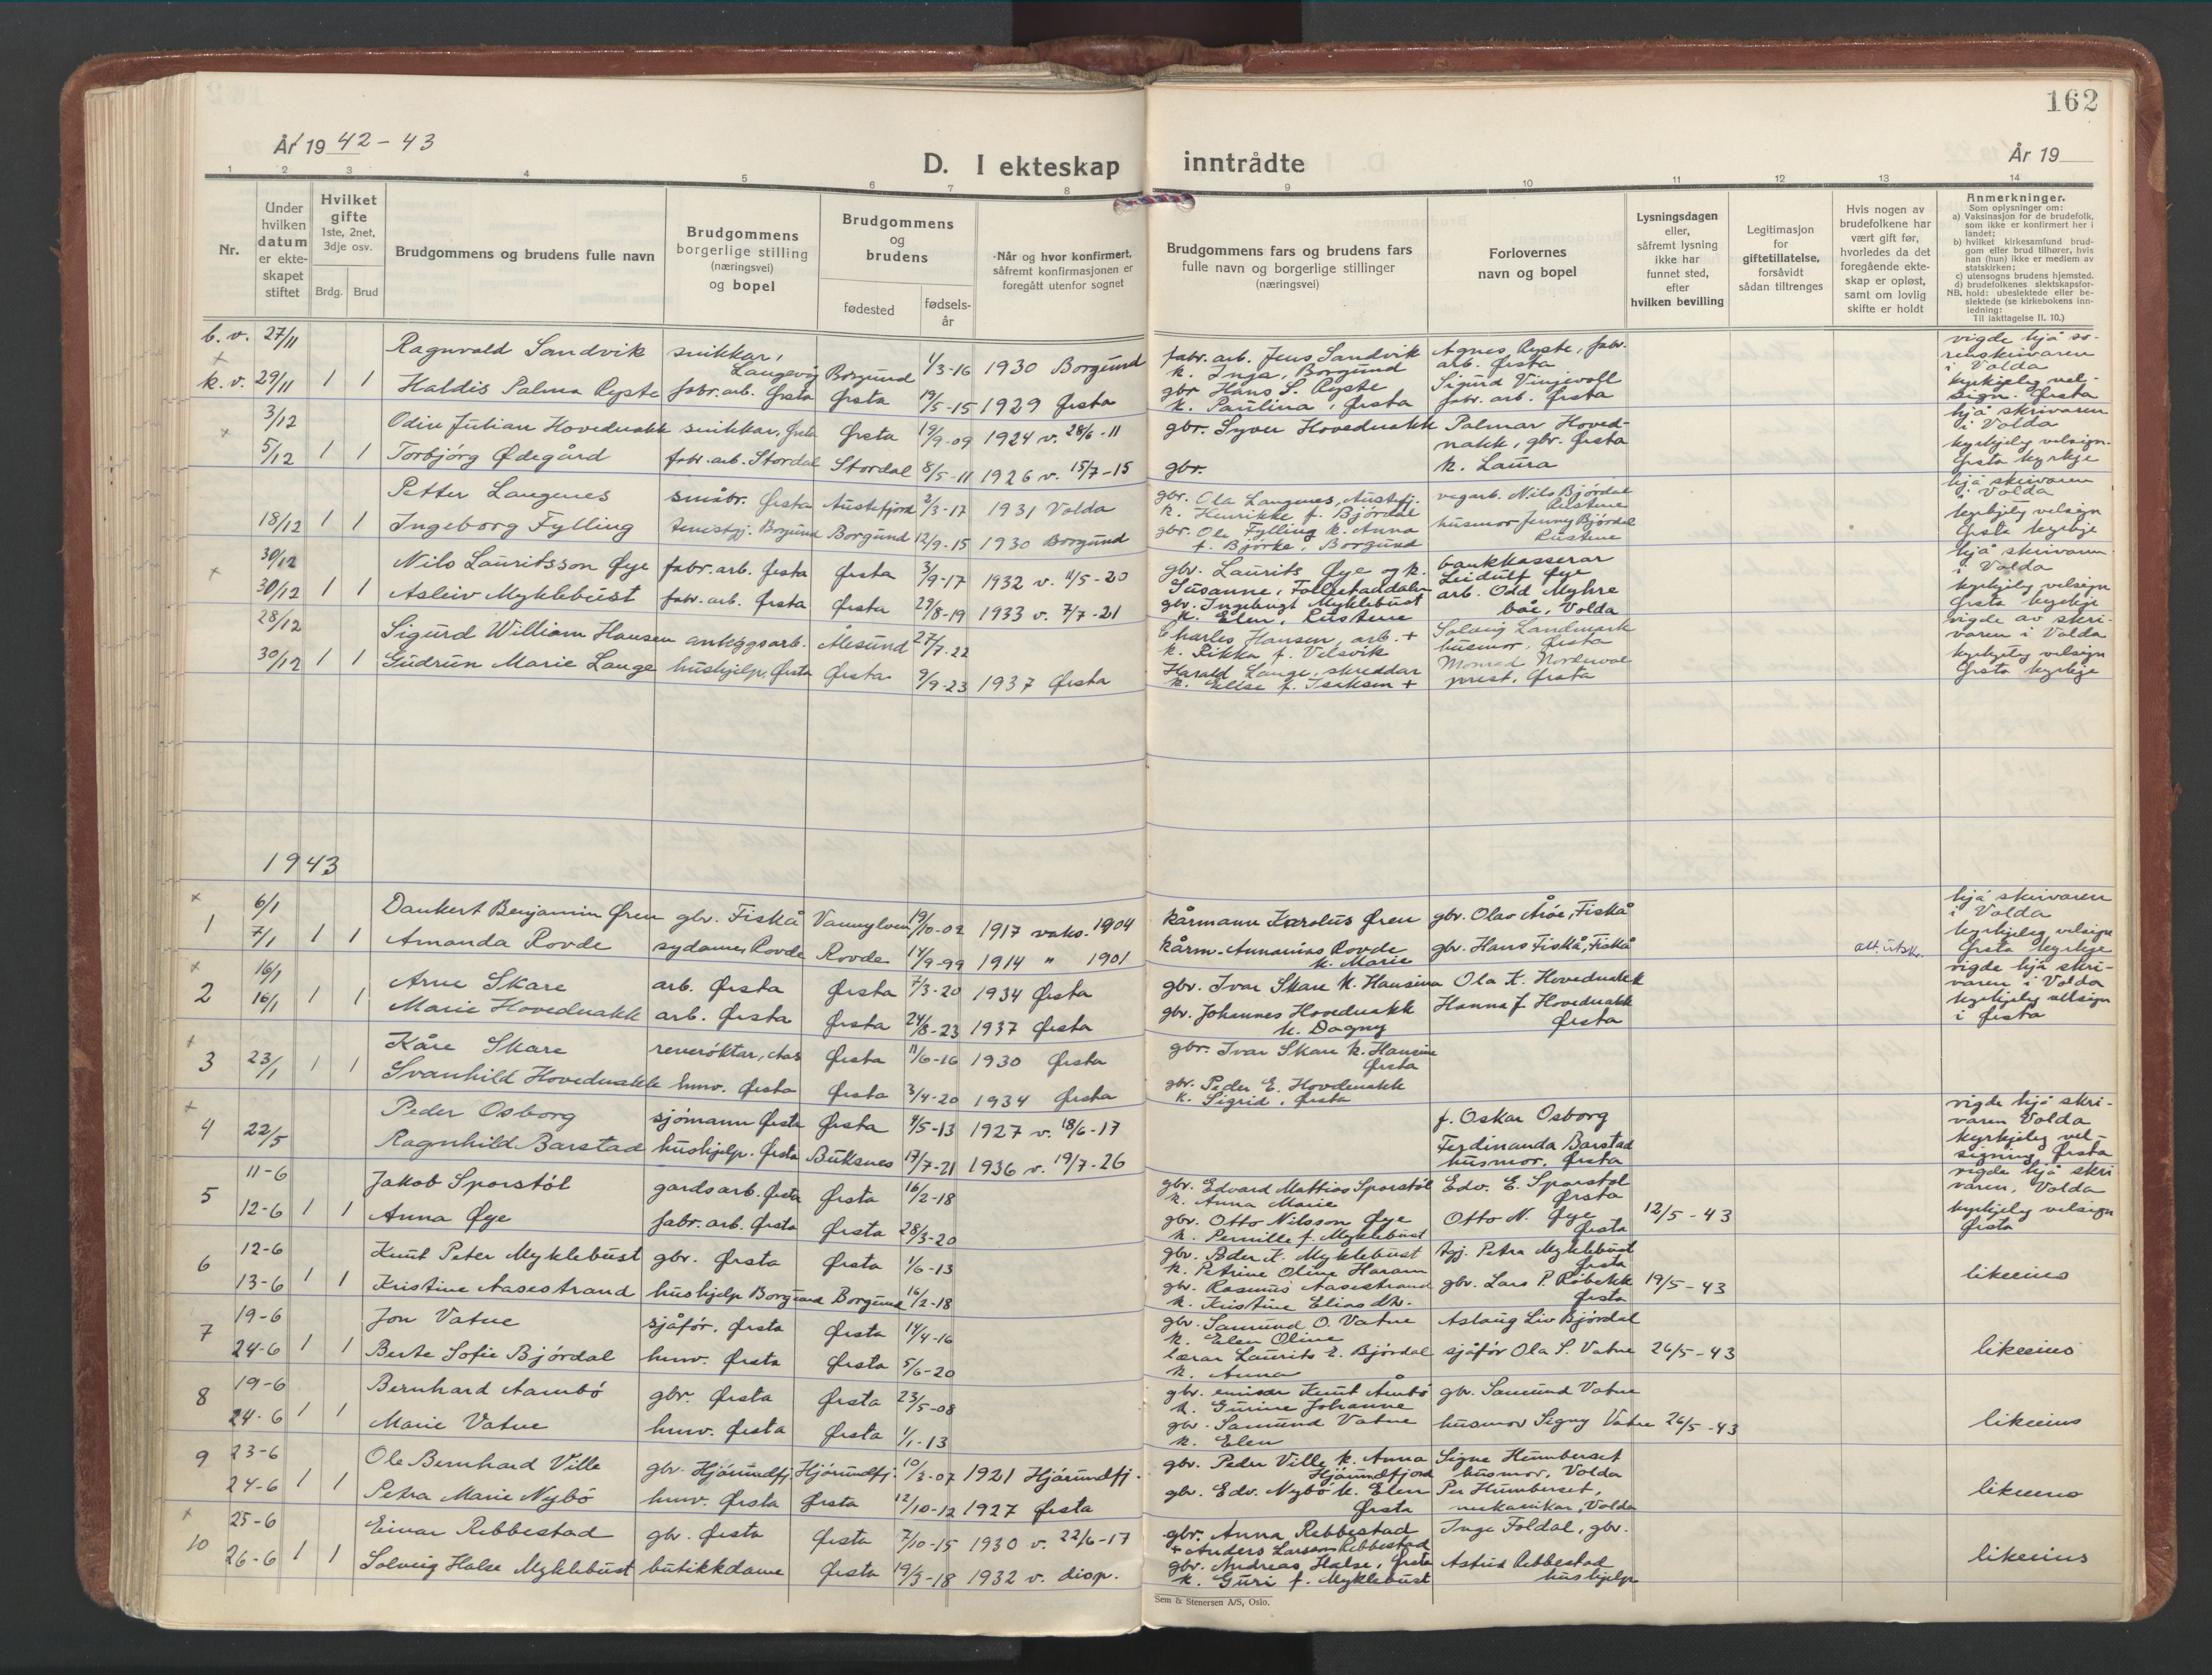 162
År 19 42 - 43
D. I ekteskap inntrådte
År 19
1 2 3 4 5 6 7 8 9 10 11 12 13 14
Nr.
Under hvilken datum er ekteskapet stiftet
Hvilket gifte 1ste, 2net, 3dje osv.
Brdg. Brud
Brudgommens og brudens fulle navn
Brudgommens borgerlige stilling (næringsvei) og bopel
Brudgommens og brudens
fødested
fødsels-år
Når og hvor konfirmert, såfremt konfirmasjonen er foregått utenfor sognet
Brudgommens fars og brudens fars fulle navn og borgerlige stillinger (næringsvei)
Forlovernes navn og bopel
Lysningsdagen eller, såfremt lysning ikke har funnet sted, efter hvilken bevilling
Legitimasjon for giftetillatelse, forsåvidt sådan tiltrenges
Hvis nogen av brudefolkene har vært gift før, hvorledes da det foregående ekteskap er opløst, samt om lovlig skifte er holdt
Anmerkninger.
Som oplysninger om:
a) Vaksinasjon for de brudefolk, som ikke er konfirmert her i landet;
b) hvilket kirkesamfund brudgom eller brud tilhører, hvis han (hun) ikke er medlem av statskirken;
c) utensogns brudens hjemsted.
d) brudefolkenes slektskapsforhold: ubeslektede eller beslektede (se kirkebokens innledning:
NB. Til iakttagelse II. 10.)
b. v. 27/11 Ragnvald Sandvik snikkar, Langevåg Borgund 1/3-16 1930 Borgund fabr. arb. Jens Sandvik k. Inga, Borgund Agnes Ryste, fabr. arb. Ørsta vigde hjå sorenskrivaren i Volda
k. v. 29/11 1 1 Haldis Palma Ryste fabr. arb. Ørsta Ørsta 19/5-15 1929 Ørsta gbr Hans S. Ryste k. Paulina, Ørsta Sigurd Vinjevoll fabr. arb. Ørsta kyrkjeleg velsign. Ørsta
3/12 Odin Julian Hovednakk snikkar, Ørsta Ørsta 19/9-09 1924 v. 28/6-11 gbr. Syver Hovednakk Palmar Hovednakk, gbr. Ørsta hjå skrivaren i Volda
5/12 1 1 Torbjörg Ødegård fabr. arb. Stordal Stordal 8/5-11 1926 v. 15/7-15 gbr. k. Laura kyrkjeleg velsign. Ørsta kyrkje
Petter Langenes småbr. Ørsta Austefjord 2/3-17 1931 Volda gbr. Ola Langenes, Austefj. k. Henrikke f. Björdal vegarb. Nils Björdal hjå skrivaren i Volda
18/12 1 1 Ingeborg Fylling Borgund Borgund 12/9-15 1930 Borgund gbr. Ole Fylling k. Anna f. Björke, Borgund husmor Jenny Björdal kyrkjeleg velsign Ørsta kyrkje
30/12 Nils Lauritsson Øye fabr. arb. Ørsta Ørsta 3/9-17 1932 v. 11/5-20 gbr. Laurits Øye og k. Susanne, Follestaddalen bankkasserar Leidulf Øye hjå skrivaren i Volda
30/12 1 1 Asleiv Myklebust fabr. arb. Ørsta Ørsta 29/8-19 1933 v. 7/7-21 gbr. Ingebrigt Myklebust k. Elen, arb. Odd Myhre båe, Volda kyrkjeleg velsign Ørsta kyrkje
28/12 Sigurd William Hansen anleggsarb. Ålesund 27/7-22 Charles Hansen, arb. + k. Rikka f. Velsvik Solveig Landmark husmor, Ørsta vigde av skrivaren i Volda
30/12 1 1 Gudrun Marie Lange hushjelp, Ørsta Ørsta 9/9-23 1937 Ørsta Harald Lange, skreddar k. Ellse f. Iseksen + Monrad Norderval prest, Ørsta kyrkjeleg velsign Ørsta kyrkje
1943
1 6/1 Dankert Benjamin Ören gbr. Fiskå Vannylven 19/10-02 1917 vaks. 1904 kårmann Karolus Ören gbr. Olav Åröe, Fiskå hjå skrivaren i Volda
7/1 1 1 Amanda Rovde sydame, Rovde Rovde 14/9-99 1914 " 1901 kårm. Annanias Rovde k. Marie gbr. Hans Fiskå, Fiskå att. utsk. kyrkjeleg velsign Ørsta kyrkje
2 16/1 Arne Skare arb. Ørsta Ørsta 7/3-20 1934 Ørsta gbr. Ivar Skare k. Hansina Ola K. Hovednakk vigde hjå skrivaren i Volda
16/1 1 1 Marie Hovednakk arb. Ørsta Ørsta 24/8-23 1937 Ørsta gbr. Johannes Hovednakk k. Dagny Hanna J. Hovednakk Ørsta kyrkjeleg velsign i Ørsta
3 23/1 1 1 Kåre Skare reveröktar, Ørsta 11/6-16 1930 Ørsta gbr. Ivar Skare k. Hansine Ørsta
Svanhild Hovednakk hmv. Ørsta Ørsta 3/4-20 1934 Ørsta gbr. Peder E. Hovdenakk k. Sigrid, Ørsta
4 22/5 Peder Osborg sjömann Ørsta Ørsta 4/5-13 1927 v. 18/6-17 f. Oskar Osborg vigde hjå skrivaren Volda
Ragnhild Barstad hushjelp. Ørsta Buksnes 17/7-21 1936 v. 19/7-26 Ferdinanda Barstad husmor, Ørsta kyrkjeleg velsigning Ørsta
5 11-6 Jakob Sporstöl gardsarb. Ørsta Ørsta 16/2-18 gbr. Edvard Mattias Sporstöl k. Anna Marie Edv. E. Sporstöl Ørsta vigde hjå skrivaren, Volda
12-6 1 1 Anna Øye fabr. arb. Ørsta Ørsta 28/3-20 gbr. Otto Nilsson Øye k. Pernille f. Myklebust Otto N. Øye Ørsta 12/5-43 kyrkjeleg velsign Ørsta
6 12-6 Knut Peter Myklebust gbr. Ørsta Ørsta 1/6-13 gbr. Peder K. Myklebust k. Petrine Oline Haram tgj. Petra Myklebust Ørsta
13-6 1 1 Kristine Aasestrand hushjelp Borgund Borgund 16/2-18 gbr. Rasmus Aasestrand k. Kristine Eliasdtr. gbr. Lars P. Röbekk Ørsta 19/5-43 likeeins
7 19-6 Jon Vatne sjåför, Ørsta Ørsta 14/4-16 gbr. Samund O. Vatne k. Elen Oline Aslaug Liv Björdal
24-6 1 1 Berte Sofie Björdal hmv. Ørsta Ørsta 5/6-20 lærar Laurits E. Björdal k. Anna sjåför Ola S. Vatne 26/5-43 likeeins
8 19-6 Bernhard Aambö gbr. Ørsta Ørsta 23/5-08 gbr. Knut Åmbö k. Gurine Johanne gbr. Samund Vatne
24-6 1 1 Marie Vatne hmv. Ørsta Ørsta 1/1-13 gbr. Samund Vatne k. Elen husmor Signy Vatne 26/5-43 likeeins
9 23-6 Ole Bernhard Ville gbr. Hjörundfj. Hjörundfj. 10/3-07 1921 Hjörundfj. gbr. Peder Ville k. Anna Hjörundfjord Signe Humberset husmor, Volda
24-6 1 1 Petra Marie Nybö hmv. Ørsta Ørsta 12/10-12 1927 Ørsta gbr. Edv. Nybö k. Elen Ørsta Per Humberset, mekanikar, Volda likeeins
10 25-6 Einar Rebbestad gbr. Ørsta Ørsta 7/10-15 1930 v. 22/6-17 gbr. Anna Rebbestad + Anders Larsen Rebbestad Inga Foldal, gbr.
26-6 1 1 Solveig Halse Myklebust butikkdame Ørsta 19/3-18 1932 v. disp. gbr. Andreas Halse, Ørsta k. Guri f. Myklebust Astrid Rebbestad hushjelp likeeins
Sem & Stenersen A/S, Oslo.